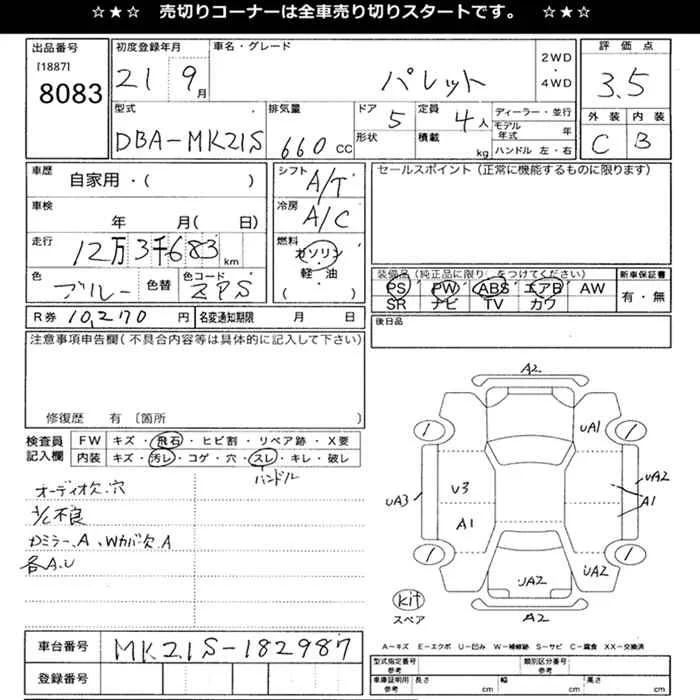 ☆★☆ 売切りコーナーは全車売り切りスタートです。 ☆★☆
出品番号
[1887]
8083
初度登録年月
21 9月
車名・グレード
パレット
2WD
・
4WD
評価点
3.5
型式
DBA-MK21S
排気量
660 CC
ドア 5
形状
定員 4人
積載 kg
ディーラー・並行
モデル年式 年
ハンドル 左・右
外装 内装
C B
車歴
自家用・( )
シフト
A/T
セールスポイント(正常に機能するものに限ります)
車検
年 月( 日)
冷房
A/C
走行
12万3千683 km
燃料
ガソリン
・
軽油
( )
色
ブルー 色替
色コード
ZPS
装備品(純正品に限り○をつけてください)
PS PW ABS エアB AW
SR ナビ TV カワ
新車保証書
有・無
R券 10,270 円
名変通知期限 月 日
後日品
注意事項申告欄(不具合内容等は具体的に記入して下さい)
修復歴 有 〔箇所 〕
検査員記入欄
FW キズ・飛石・ヒビ割・リペア跡・X要
内装 キズ・汚レ・コゲ・穴・スレ・キレ・破レ
ハンドル
オーディオ欠.穴
A/C不良
Dミラー.A、Wカバ欠.A
各A.U
A2
1 UA1 1
UA3 U3 UA2
A1 A1
1 UA2 UA2 1
kit
スペア
A2
A−キズ E−エクボ U−凹み W−補修跡 S−サビ C−腐食 XX−交換済
車台番号 MK21S-182987
登録番号
型式指定番号 参考
類別区分番号 参考
車庫証明用 参考 長さ cm 幅 cm 高さ cm